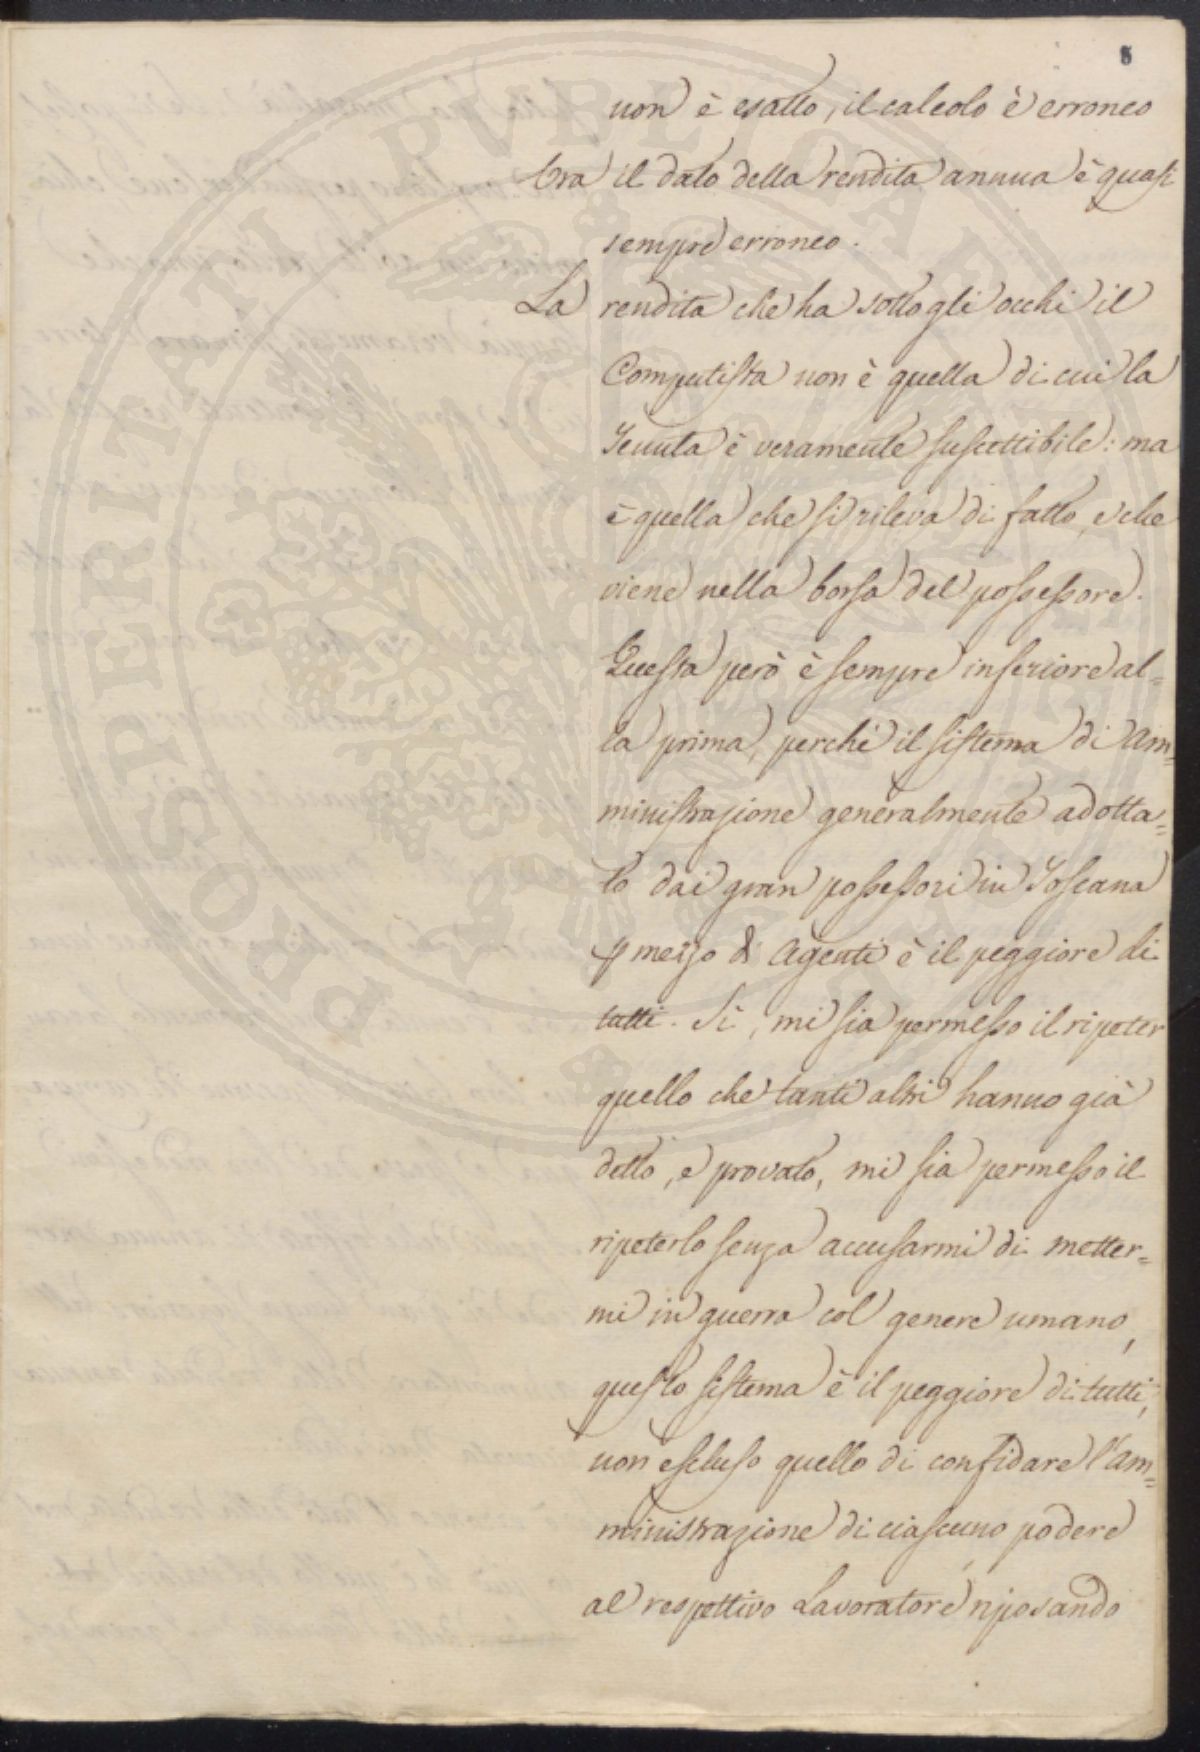 8
non è esatto, il calcolo è erroneo
Ora il dato della rendita annua è quasi
sempre erroneo.
La rendita che ha sotto gli occhi il
Computista non è quella di cui la
Tenuta è veramente suscettibile: ma
è quella che si rileva di fatto, e che
viene nella borsa del possessore.
Questa però è sempre inferiore al=
la prima, perchè il sistema di Am=
ministrazione generalmente adotta=
to dai gran possessori in Toscana
p mezzo di Agenti è il peggiore di
tutti. Sì, mi sia permesso il ripeter
quello che tanti altri hanno già
detto, e provato, mi sia permesso il
ripeterlo senza accusarmi di metter=
mi in guerra col genere umano,
questo sistema è il peggiore di tutti,
non escluso quello di confidare l'Am=
ministrazione di ciascuno podere
al respettivo Lavoratore riposando
PROSPERITATI PVBLICAE